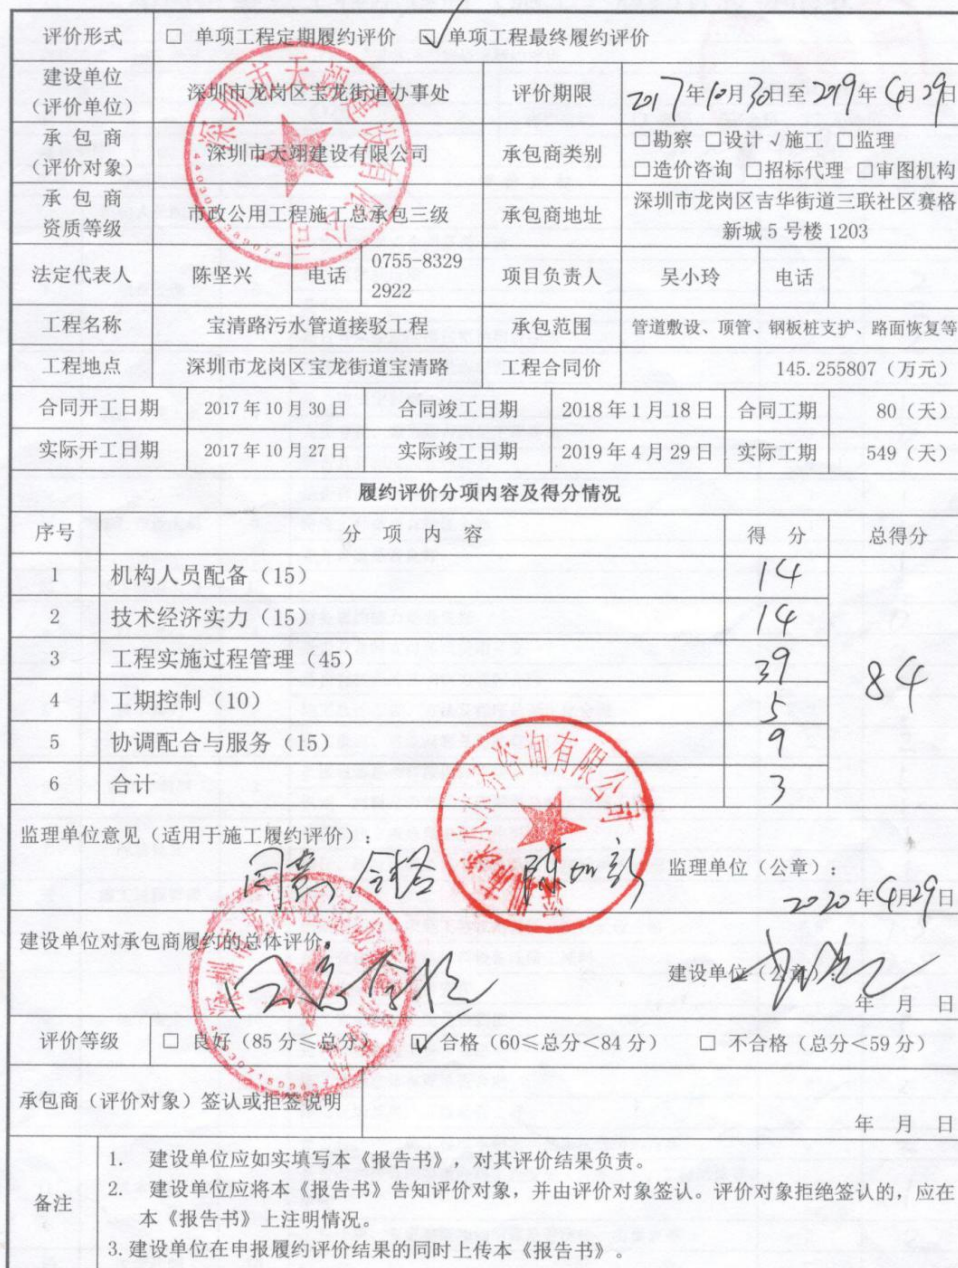 评价形式 □ 单项工程定期履约评价 ☑ 单项工程最终履约评价
建设单位
(评价单位) 深圳市龙岗区宝龙街道办事处 评价期限 2017年10月30日至2019年4月29日
承包商
(评价对象) 深圳市天翊建设有限公司 承包商类别 □勘察 □设计 √施工 □监理
□造价咨询 □招标代理 □审图机构
承包商
资质等级 市政公用工程施工总承包三级 承包商地址 深圳市龙岗区吉华街道三联社区赛格
新城5号楼1203
法定代表人 陈坚兴 电话 0755-8329
2922 项目负责人 吴小玲 电话
工程名称 宝清路污水管道接驳工程 承包范围 管道敷设、顶管、钢板桩支护、路面恢复等
工程地点 深圳市龙岗区宝龙街道宝清路 工程合同价 145.255807(万元)
合同开工日期 2017年10月30日 合同竣工日期 2018年1月18日 合同工期 80(天)
实际开工日期 2017年10月27日 实际竣工日期 2019年4月29日 实际工期 549(天)
履约评价分项内容及得分情况
序号 分项内容 得分 总得分
1 机构人员配备(15) 14
2 技术经济实力(15) 14
3 工程实施过程管理(45) 39
84
4 工期控制(10) 5
5 协调配合与服务(15) 9
6 合计 3
监理单位意见(适用于施工履约评价):
同意 合格
监理单位(公章):
2020年4月29日
建设单位对承包商履约的总体评价。
同意合格
建设单位(公章)
年 月 日
评价等级 □ 良好(85分≤总分) ☑ 合格(60≤总分<84分) □ 不合格(总分<59分)
承包商(评价对象)签认或拒签说明
年 月 日
备注
1. 建设单位应如实填写本《报告书》,对其评价结果负责。
2. 建设单位应将本《报告书》告知评价对象,并由评价对象签认。评价对象拒绝签认的,应在
本《报告书》上注明情况。
3.建设单位在申报履约评价结果的同时上传本《报告书》。
深圳市天翊建设有限公司